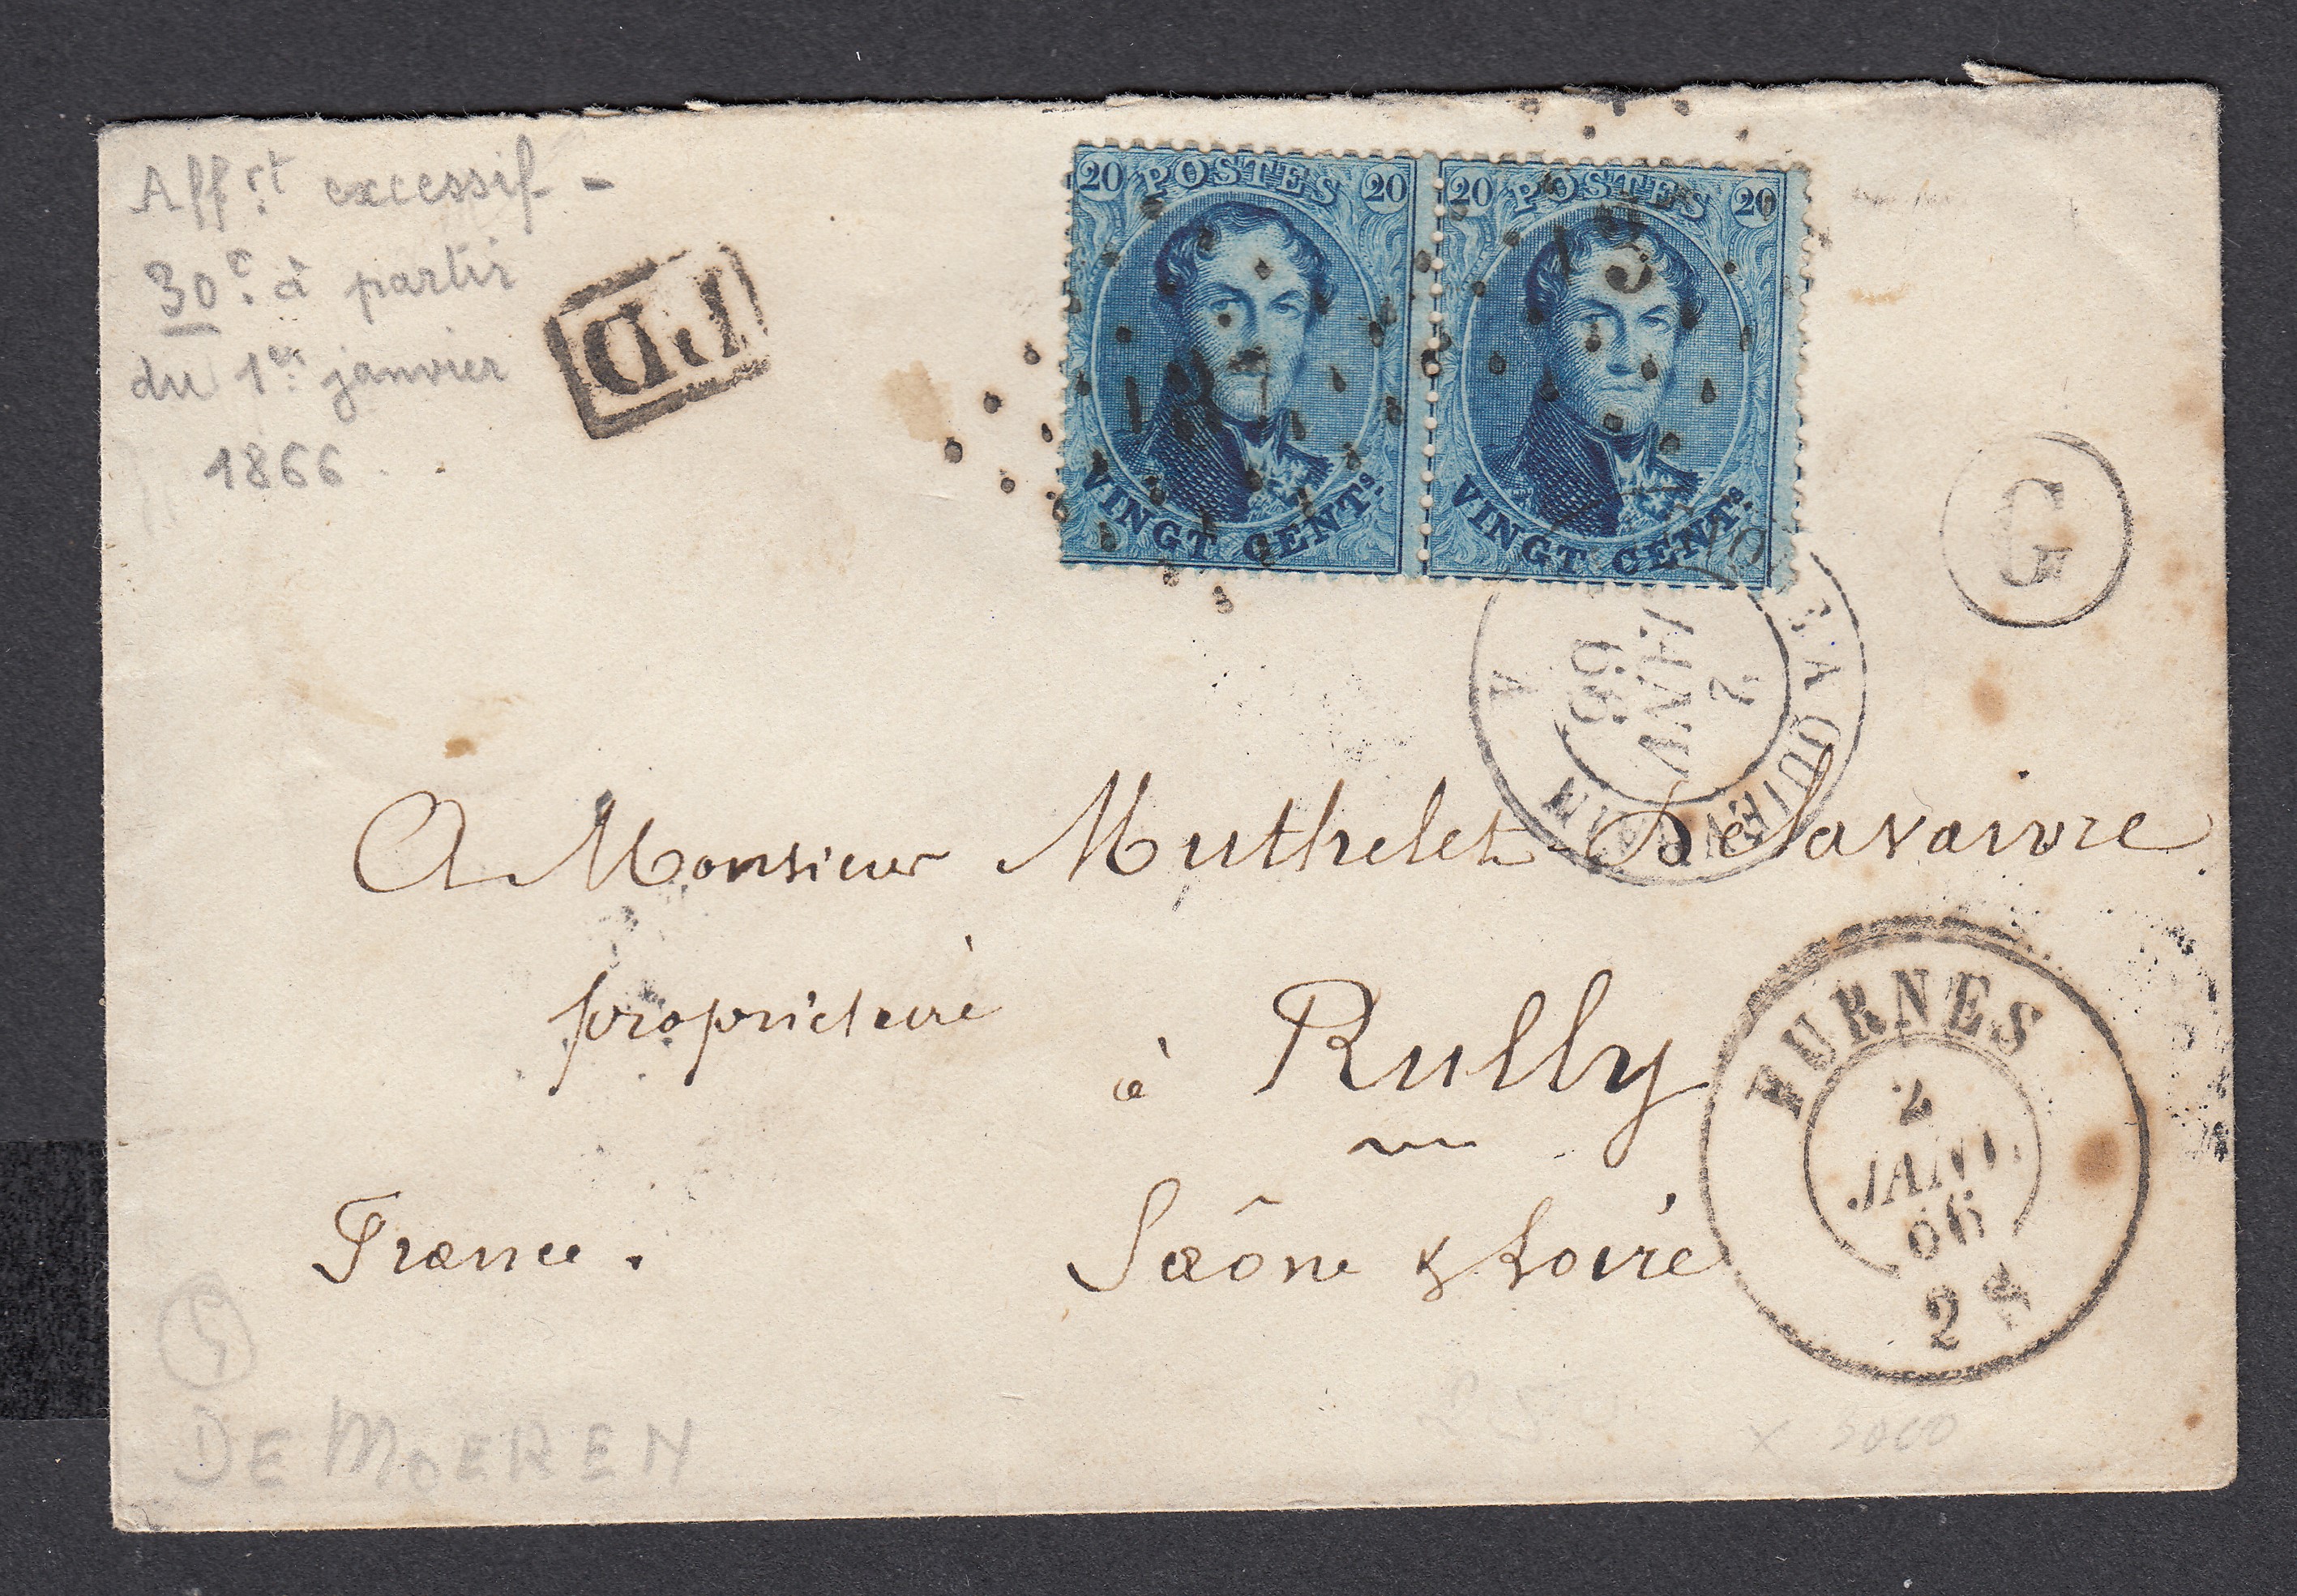 Aff.rt excessif -
30c. à partir
du 1er janvier
1866.
PD
20 POSTES 20
VINGT CENTS.
20 POSTES 20
VINGT CENTS.
2
JANV
66
A Monsieur Muthelet-Delavaivre
proprietaire
à Rully
France.
Saône & Loire
FURNES
2
JANV.
66
5
DE MOEREN
x 3000